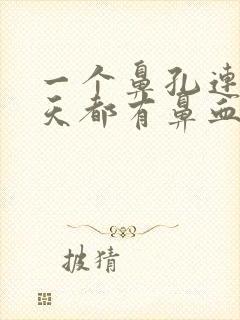 一个鼻孔连
天都有鼻血
披猜